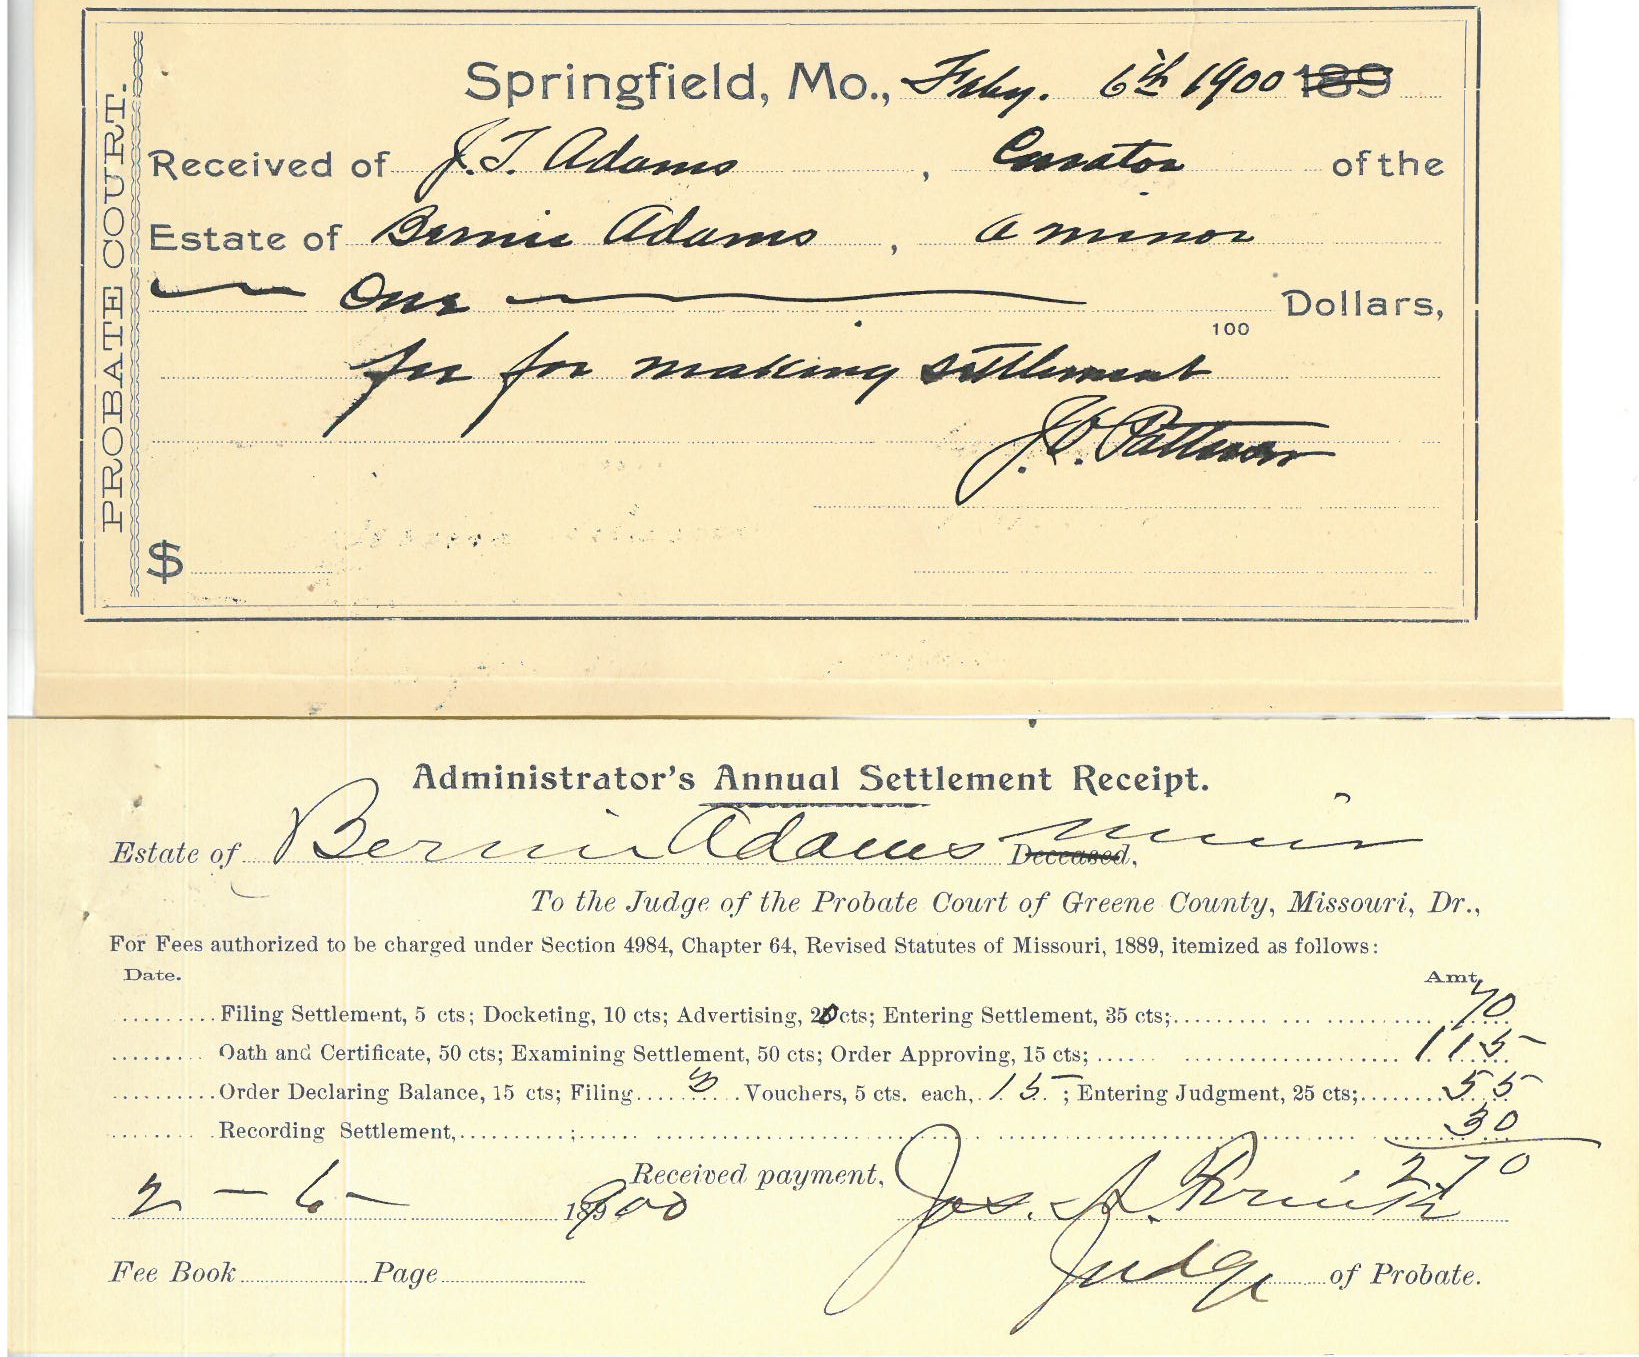 PROBATE COURT.
Springfield, Mo., Feby. 6th 1900 189
Received of J. T. Adams, Curator of the
Estate of Bernie Adams, a minor
One Dollars,
100
fee for making settlement
J. C. Patterson
$
Administrator's Annual Settlement Receipt.
Estate of Bernie Adams Deceased, Minor
To the Judge of the Probate Court of Greene County, Missouri, Dr.,
For Fees authorized to be charged under Section 4984, Chapter 64, Revised Statutes of Missouri, 1889, itemized as follows:
Date. Amt.
Filing Settlement, 5 cts; Docketing, 10 cts; Advertising, 20 cts; Entering Settlement, 35 cts; 70
Oath and Certificate, 50 cts; Examining Settlement, 50 cts; Order Approving, 15 cts; 1 15
Order Declaring Balance, 15 cts; Filing 3 Vouchers, 5 cts. each, 15; Entering Judgment, 25 cts; 55
Recording Settlement, ; 30
2 70
Received payment,
2 - 6 - 1900 Jos. A.
Judge of Probate.
Fee Book Page